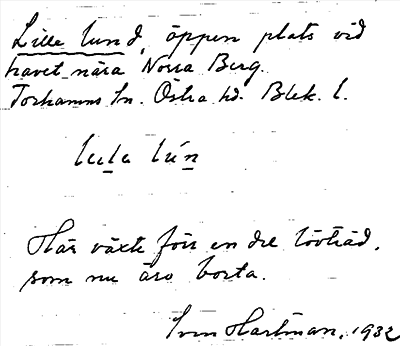 Lille lund, öppen plats vid
havet nära Norra Berg.
Torhamns sn. Östra hd. Blek. l.
lıla lún
Här växte förr en del lövträd,
som nu äro borta.
Sven Hartman, 1932